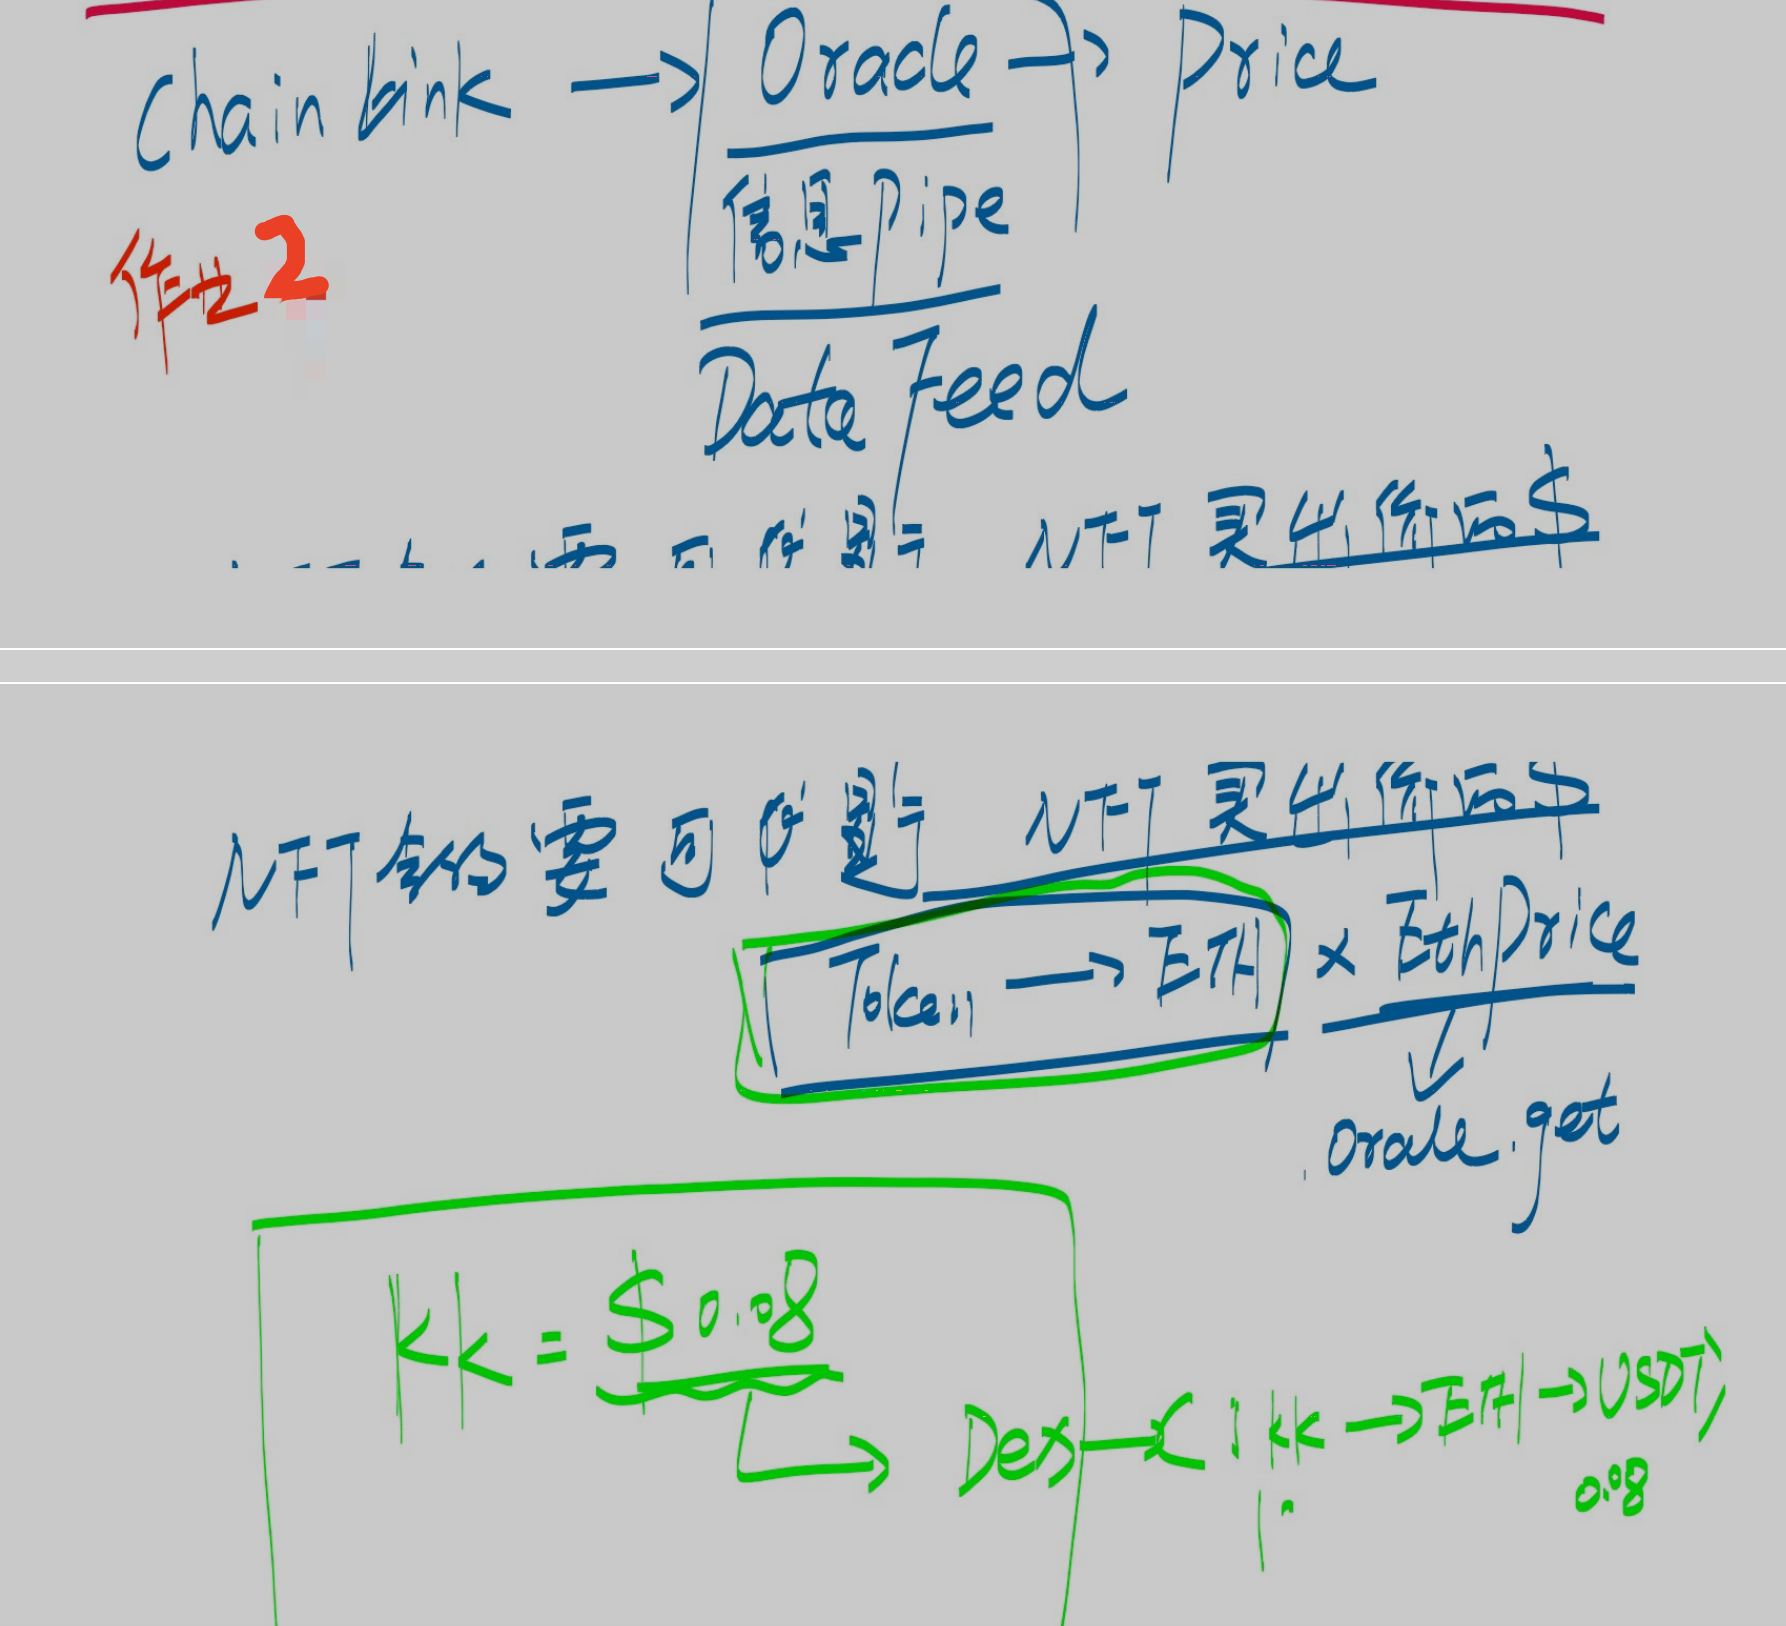 ChainLink → Oracle → Price
信息 Pipe
作业 2
Data Feed
NFT 卖出 价 $
NFT 要可 NFT 卖出 价 $
Token → ETH × EthPrice
Oracle.get
KK = $0.08
Dex 1 KK → ETH → USDT
0.08